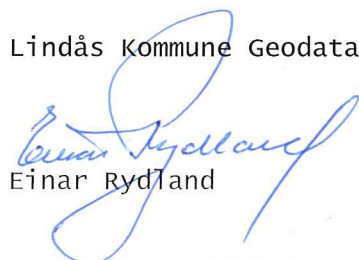 Lindås Kommune Geodata
Einar Rydland
Einar Rydland